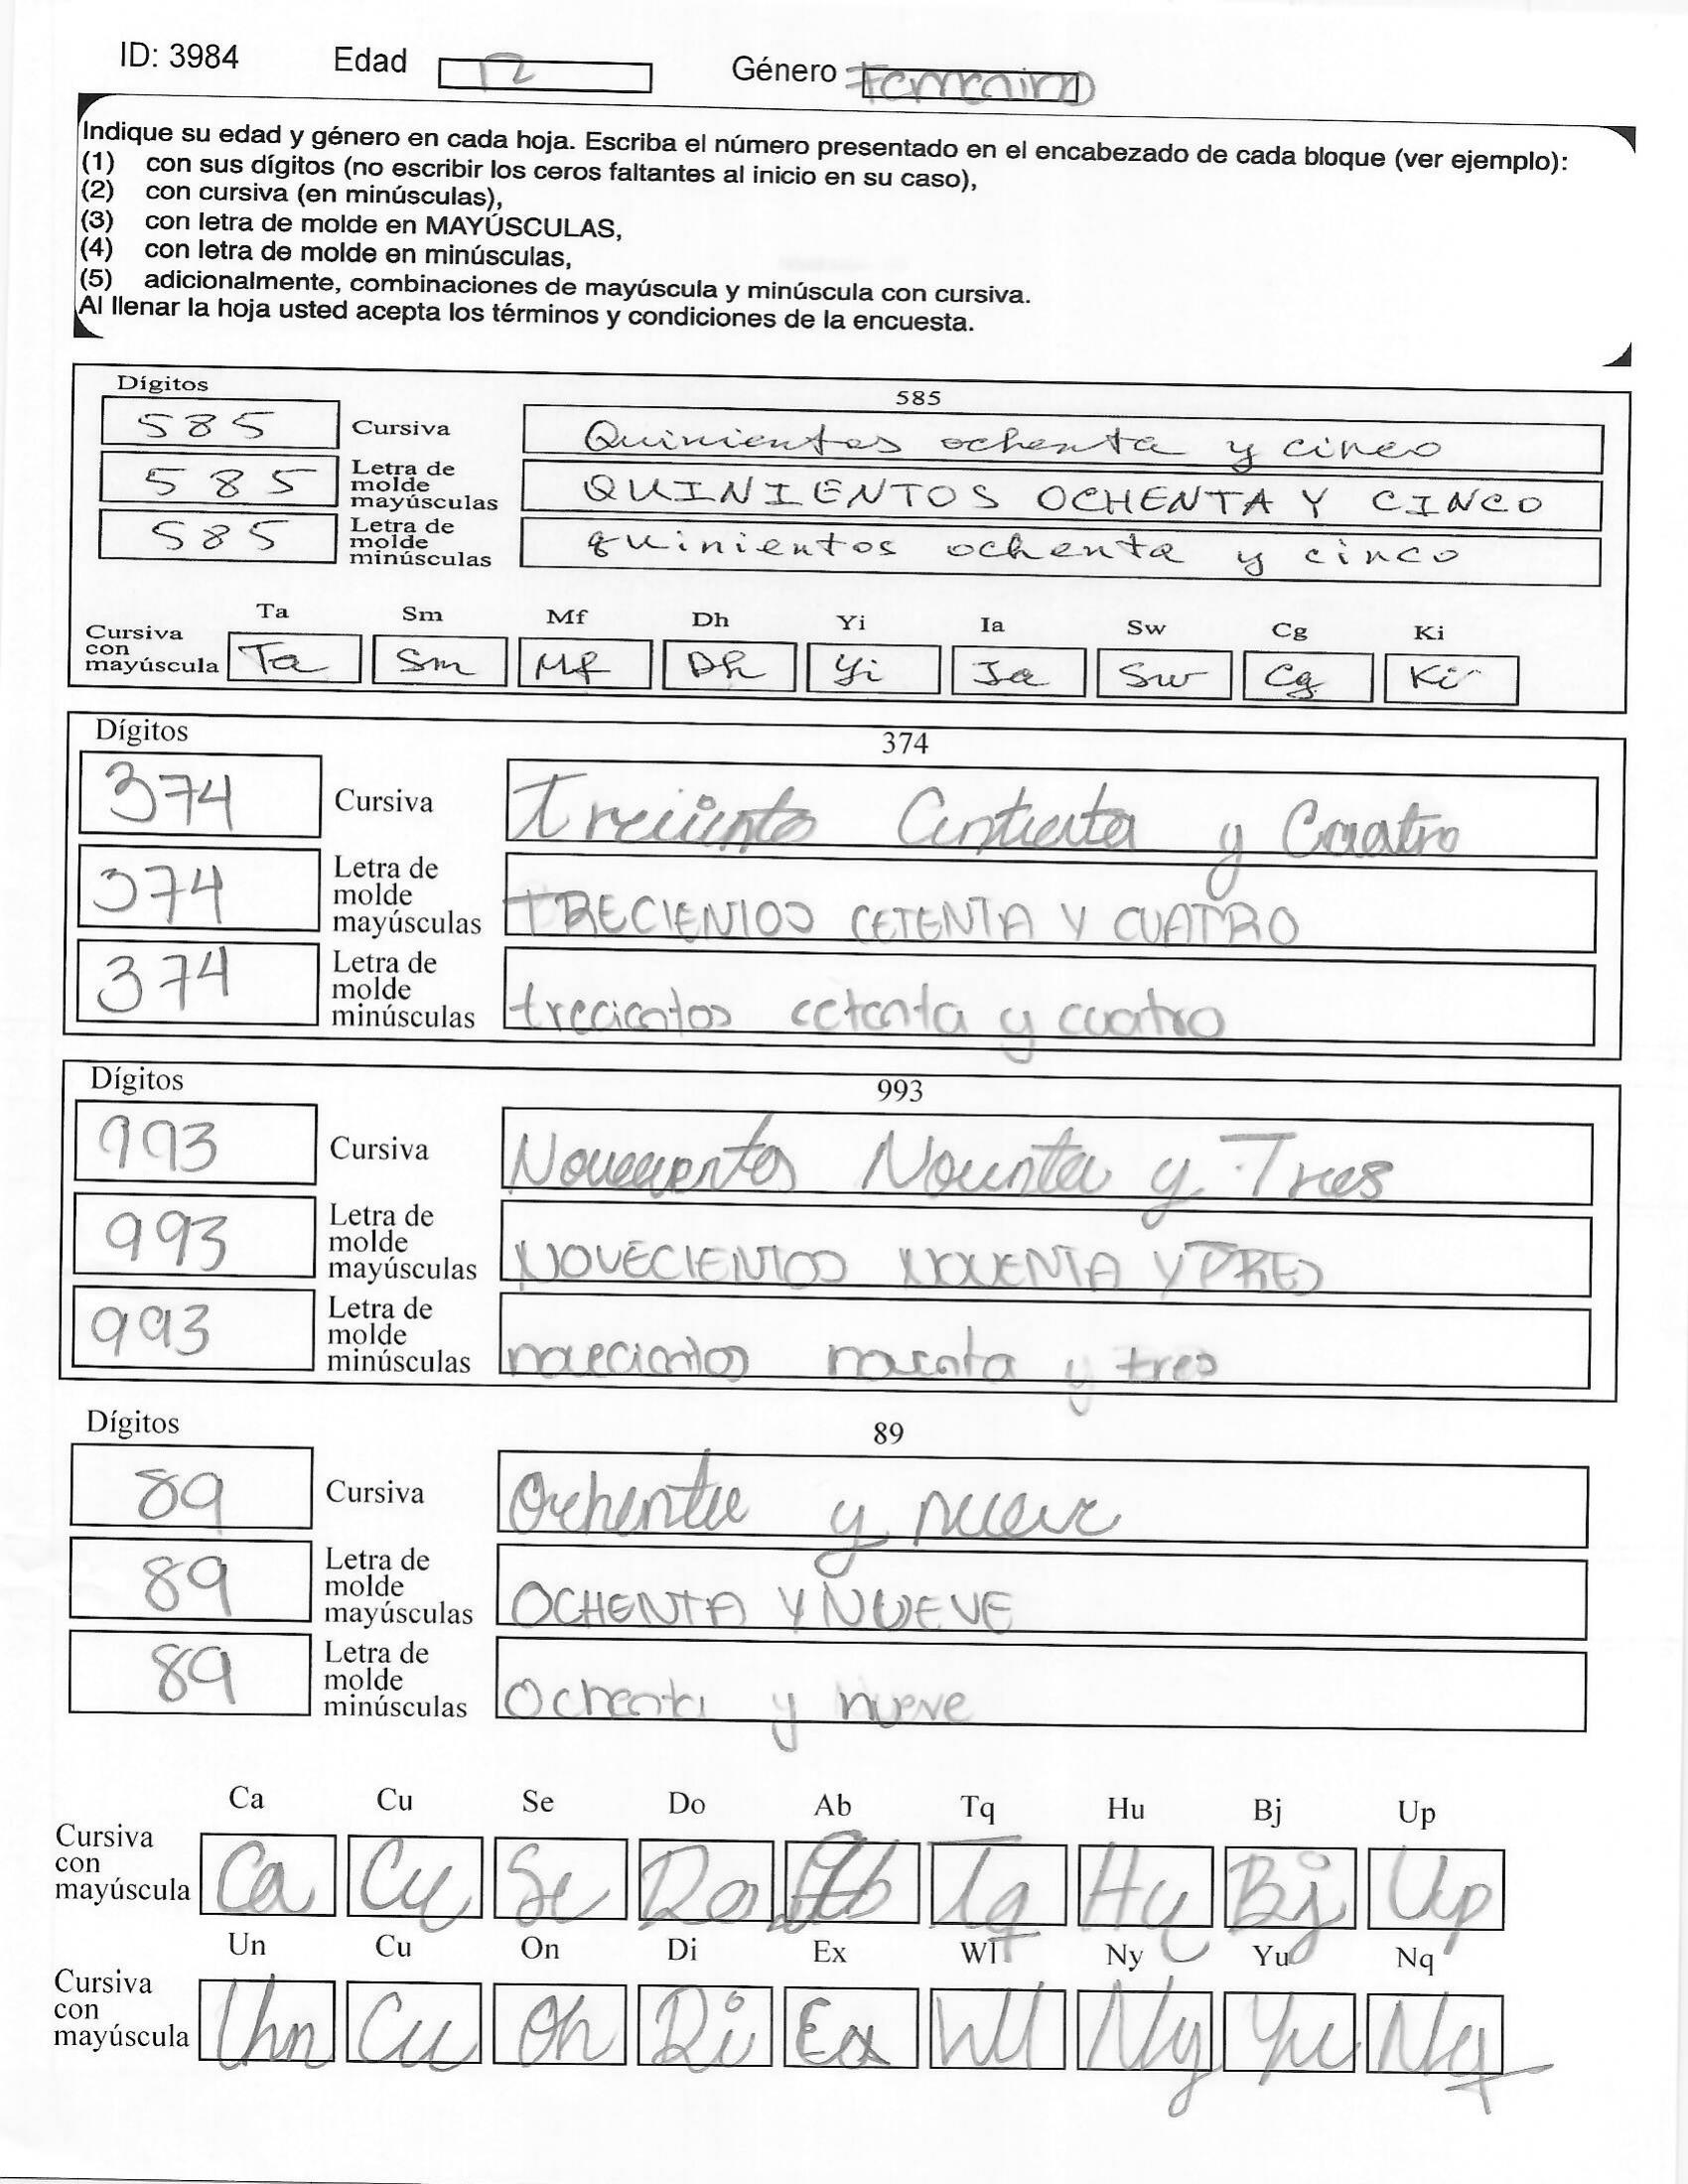 ID: 3984 Edad 12 Género Femenino
Indique su edad y género en cada hoja. Escriba el número presentado en el encabezado de cada bloque (ver ejemplo):
(1) con sus dígitos (no escribir los ceros faltantes al inicio en su caso),
(2) con cursiva (en minúsculas),
(3) con letra de molde en MAYÚSCULAS,
(4) con letra de molde en minúsculas,
(5) adicionalmente, combinaciones de mayúscula y minúscula con cursiva.
Al llenar la hoja usted acepta los términos y condiciones de la encuesta.
Dígitos 585
585 Cursiva Quinientos ochenta y cinco
585 Letra de molde mayúsculas QUINIENTOS OCHENTA Y CINCO
585 Letra de molde minúsculas quinientos ochenta y cinco
Ta Sm Mf Dh Yi Ia Sw Cg Ki
Cursiva con mayúscula Ta Sm Mf Dh Yi Ia Sw Cg Ki
Dígitos 374
374 Cursiva y Cuatro
374 Letra de molde mayúsculas TRECIENTOS CETENTA Y CUATRO
374 Letra de molde minúsculas trecientos cetenta y cuatro
Dígitos 993
993 Cursiva y Tres
993 Letra de molde mayúsculas NOVECIENTOS NOVENTA Y TRES
993 Letra de molde minúsculas y tres
Dígitos 89
89 Cursiva Ochenta y nueve
89 Letra de molde mayúsculas OCHENTA Y NUEVE
89 Letra de molde minúsculas Ochenta y nueve
Ca Cu Se Do Ab Tq Hu Bj Up
Cursiva con mayúscula Ca Cu Se Do Ab Tq Hu Bj Up
Un Cu On Di Ex Wl Ny Yu Nq
Cursiva con mayúscula Un Cu On Di Ex Wl Ny Yu Nq